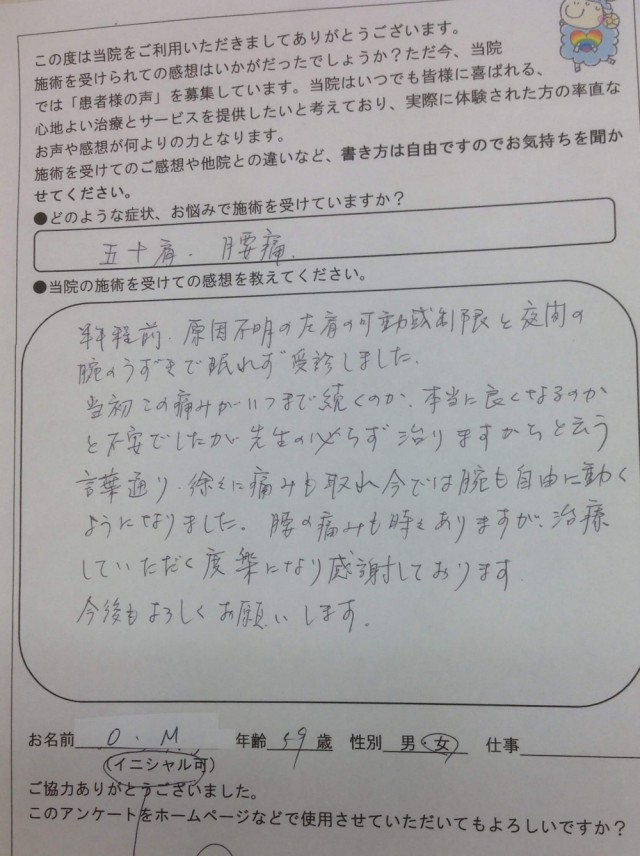 この度は当院をご利用いただきましてありがとうございます。
施術を受けられての感想はいかがだったでしょうか？ただ今、当院
では「患者様の声」を募集しています。当院はいつでも皆様に喜ばれる、
心地よい治療とサービスを提供したいと考えており、実際に体験された方の率直な
お声や感想が何よりの力となります。
施術を受けてのご感想や他院との違いなど、書き方は自由ですのでお気持ちを聞か
せてください。
●どのような症状、お悩みで施術を受けていますか？
五十肩、腰痛
●当院の施術を受けての感想を教えてください。
半年程前、原因不明の左肩の可動域制限と夜間の
腕のうずきで眠れず受診しました。
当初この痛みがいつまで続くのか、本当に良くなるのか
と不安でしたが先生の必らず治りますからと云う
言葉通り、徐々に痛みも取れ今では腕も自由に動く
ようになりました。腰の痛みも時々ありますが、治療
していただく度楽になり感謝しております。
今後もよろしくお願いします。
お名前 O．M 年齢 59 歳 性別 男・女 仕事
(イニシャル可)
ご協力ありがとうございました。
このアンケートをホームページなどで使用させていただいてもよろしいですか？